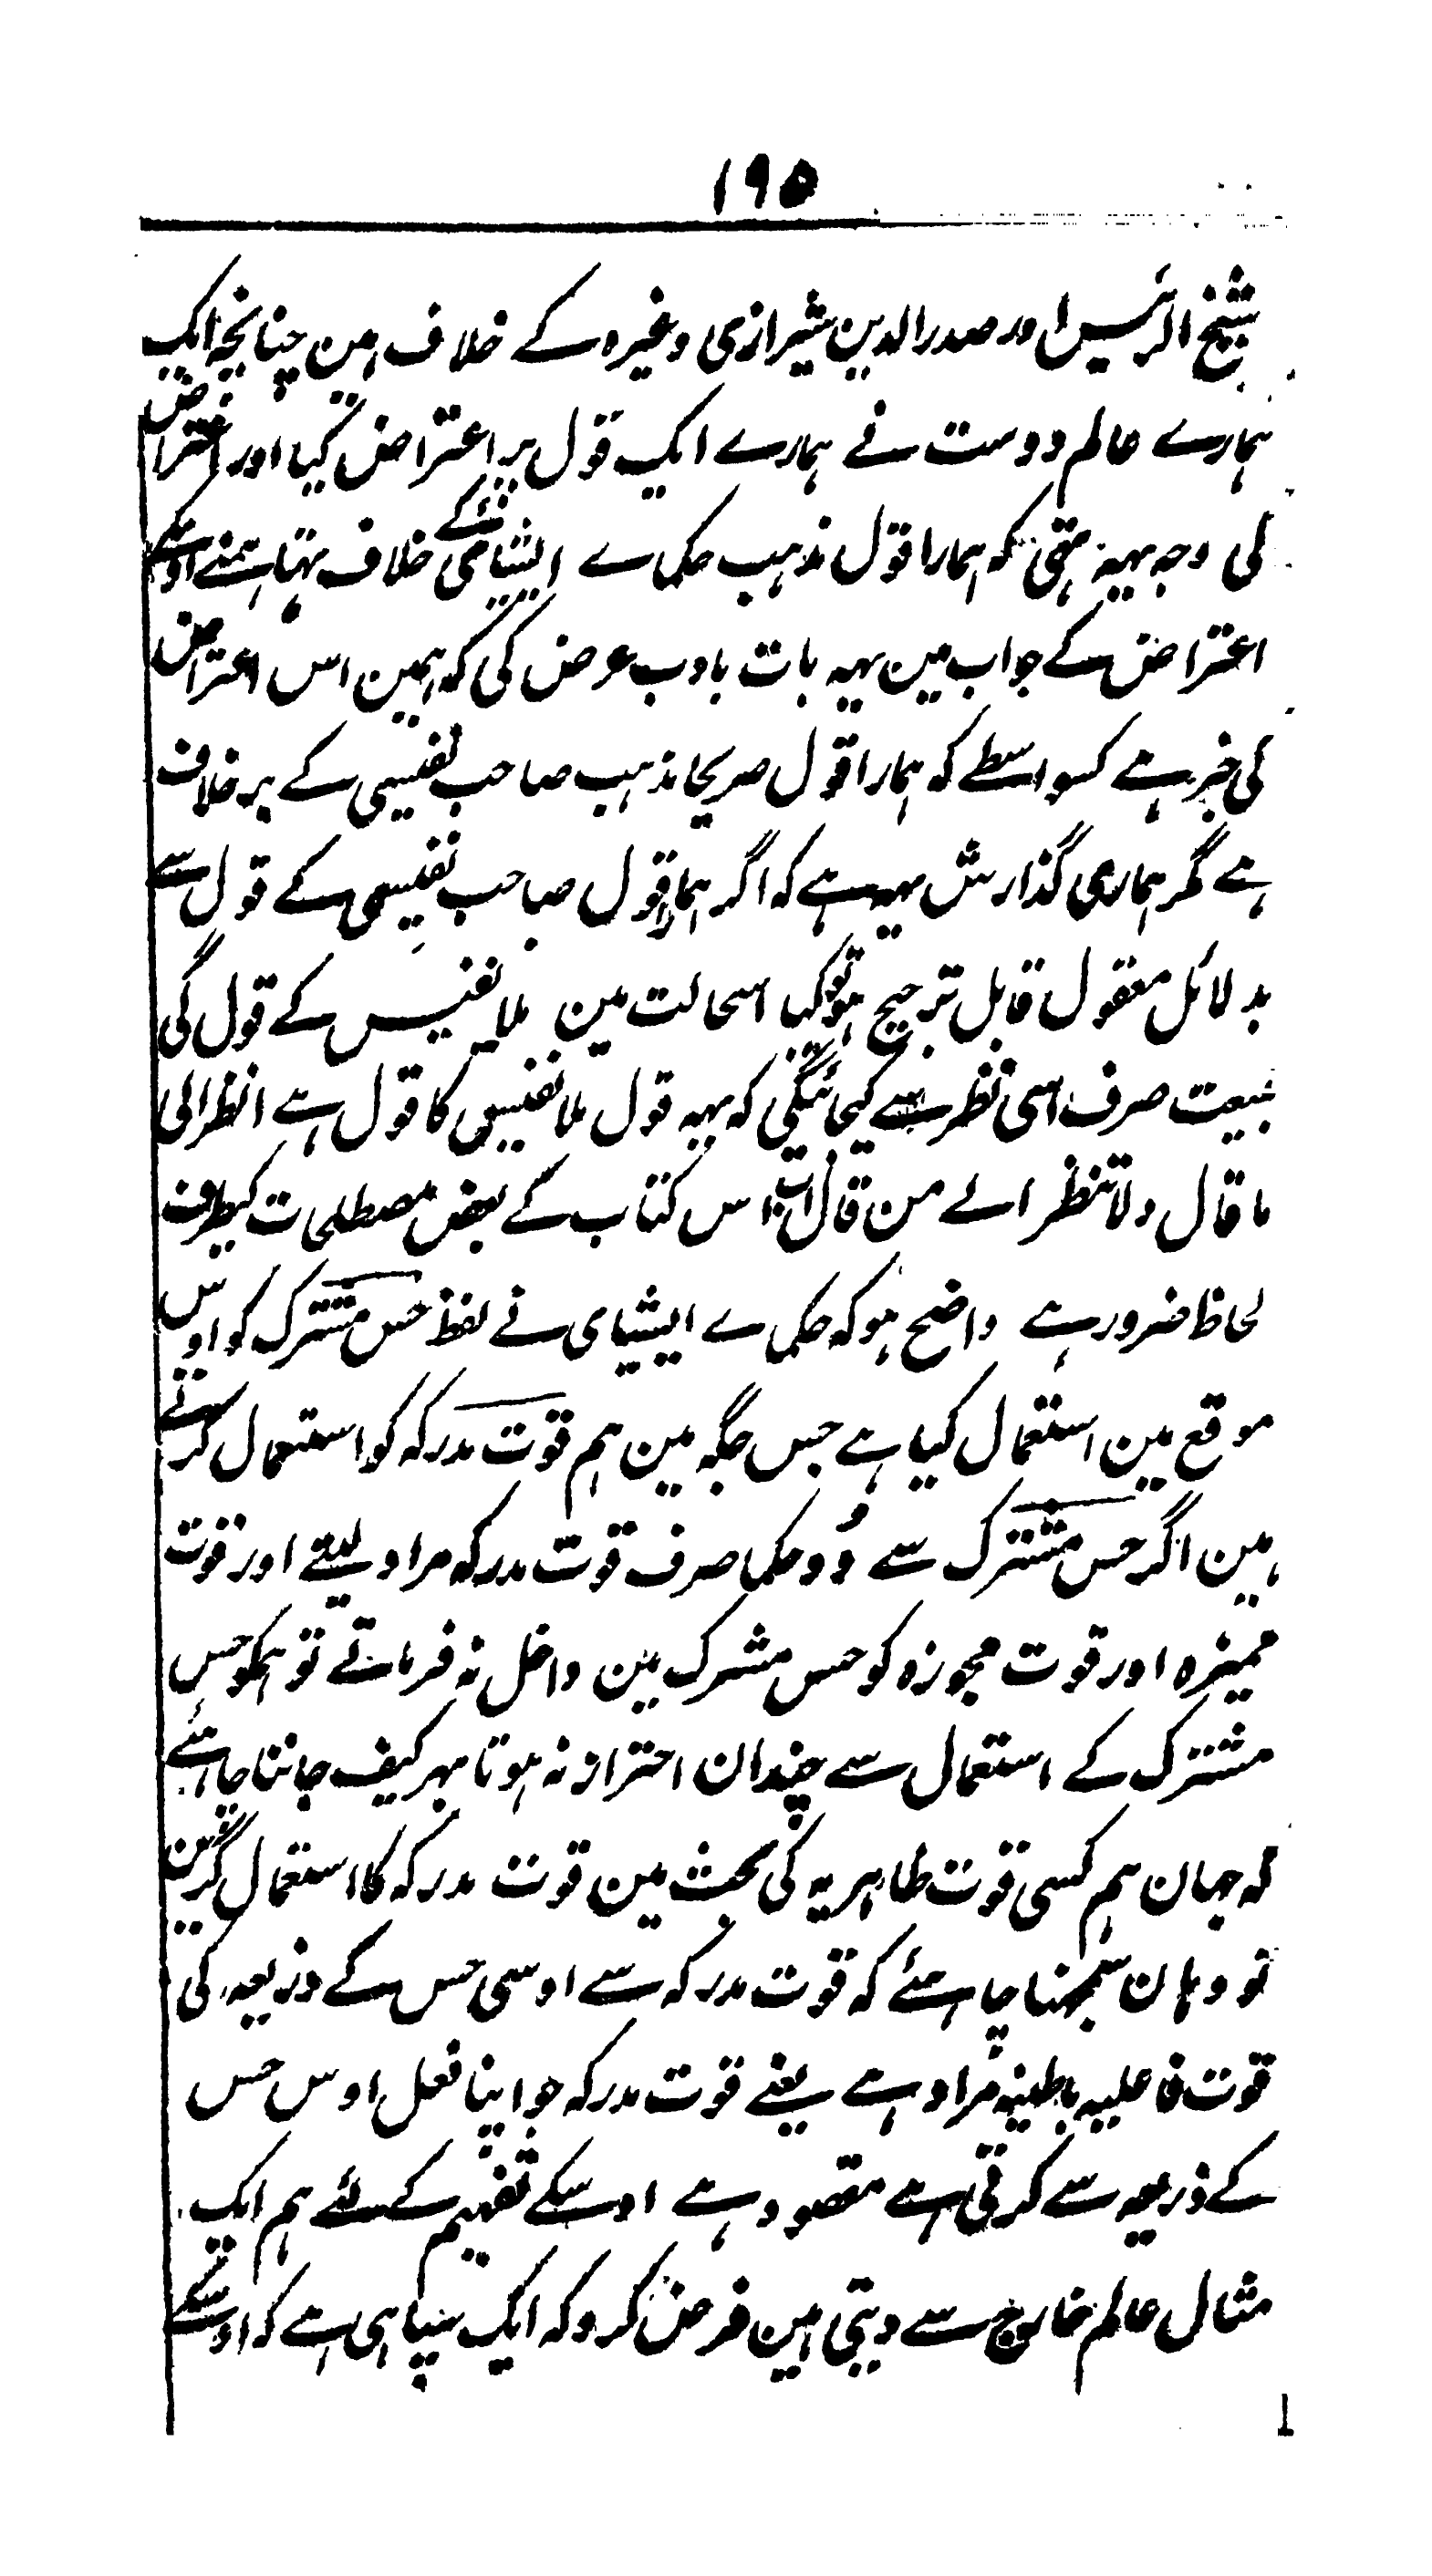 ۱۹۵
شیخ الرئیس اور صدر الدین شیرازی وغیرہ کے خلاف ہین چنانچہ ایک
ہمارے عالم دوست نے ہمارے ایک قول پر اعتراض کیا اور اعتراض
کی وجہ یہہ تہی کہ ہمارا قول مذہب حکماے ایشیائی کے خلاف تہا ہمنے اوس
اعتراض کے جواب مین یہہ بات بادب عرض کی کہ ہمین اس اعتراض
کی خبر ہے کسواسطے کہ ہمارا قول صریحا مذہب صاحب نفیسی کے برخلاف
ہے مگر ہماری گذارش یہہ ہے کہ اگر ہمارا قول صاحب نفیسی کے قول سے
بدلائل معقول قابل ترجیح ہو تو کیا اسحالت مین ملا نفیس کے قول کی
تبیعت صرف اسی نظر سے کیجائیگی کہ یہہ قول ملا نفیسی کا قول ہے انظر الی
ما قال ولا تنظر الے من قال اب اس کتاب کے بعض مصطلحات کیطرف
لحاظ ضرور ہے واضح ہو کہ حکماے ایشیای نے لفظ حس مشترک کو اوس
موقع مین استعمال کیا ہے جس جگہ مین ہم قوت مدرکہ کو استعمال کرتے
ہین اگر حس مشترک سے وُہ حکما صرف قوت مدرکہ مراد لیتے اور قوت
ممیزہ اور قوت مجوزہ کو حس مشترک مین داخل نہ فرماتے تو ہمکو حس
مشترک کے استعمال سے چندان احتراز نہ ہوتا بہر کیف جاننا چاہئے
کہ جہان ہم کسی قوت ظاہریہ کی بحث مین قوت مدرکہ کا استعمال کرین
تو وہان سمجہنا چاہئے کہ قوت مدرکہ سے اوسی حس کے ذریعہ کی
قوت فاعلیہ باطنیہ مراد ہے یعنے قوت مدرکہ جو اپنا فعل اوس حس
کے ذریعہ سے کرتی ہے مقصود ہے اوسکے تفہیم کے لئے ہم ایک
مثال عالم خارج سے دیتی ہین فرض کرو کہ ایک سپاہی ہے کہ اوسکے